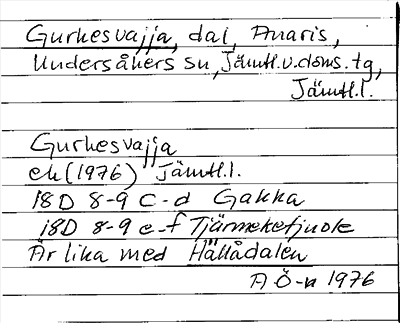 Gurkesvajja, dal, Anaris,
Undersåkers sn, Jämtl.v.doms.tg,
Jämtl.l.
Gurkesvajja
ek (1976) Jämtl.l.
18D 8-9 c-d Gakka
18D 8-9 e-f Tjärmeketjuole
Är lika med Hållådalen
A Ö-n 1976